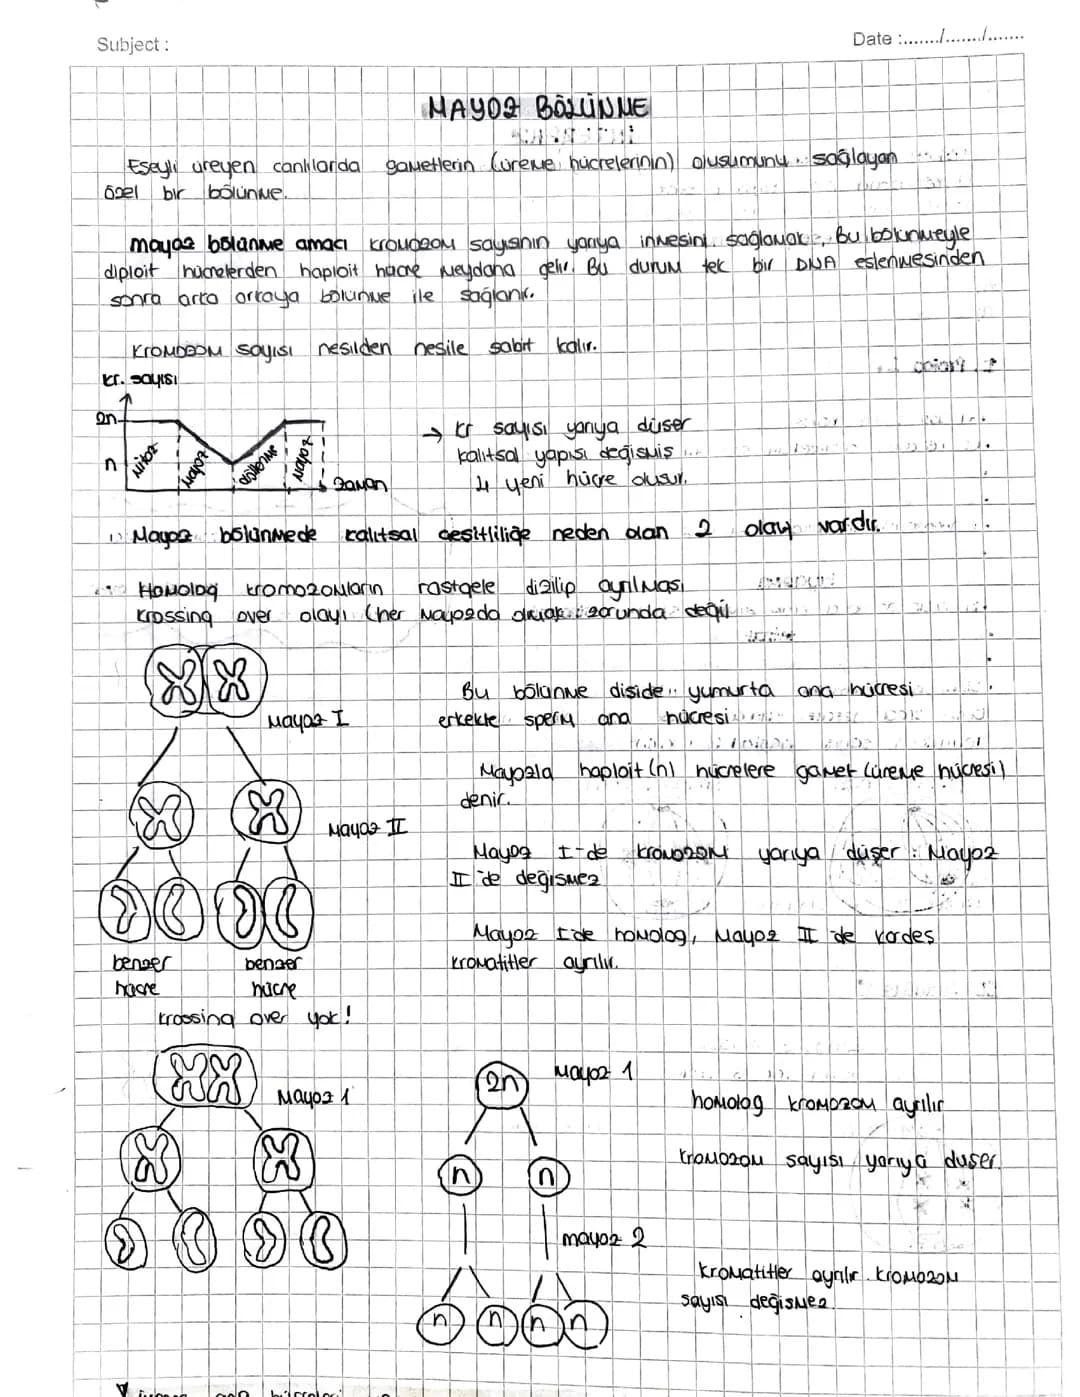 Subject :
Date :......./......./.......
MAYOZ BÖLÜNME
Eşeyli üreyen canlılarda gametlerin (üreme hücrelerinin) oluşumunu sağlayan
özel bir bölünme.
mayoz bölünme amacı kromozom sayısının yarıya inmesini sağlamak, Bu bölünmeyle
diploit hücrelerden haploit hücre meydana gelir. Bu durum tek bir DNA eşlenmesinden
sonra arka arkaya bölünme ile sağlanır.
Kromozom sayısı nesilden nesile sabit kalır.
kr. sayısı
2n
n
Mitoz
Mayoz
döllenme
Mayoz
zaman
→ kr sayısı yarıya düşer
kalıtsal yapısı değişmiş
4 yeni hücre oluşur.
Mayoz bölünmede kalıtsal çeşitliliğe neden olan 2 olay vardır.
Homolog kromozomların rastgele dizilip ayrılması
krossing over olayı (her mayozda olmak zorunda değil
Bu bölünme dişide yumurta ana hücresi
erkekte sperm ana hücresi
Mayoz I
Mayozla haploit (n) hücrelere gamet (üreme hücresi)
denir.
Mayoz II
Mayoz I-de kromozom yarıya düşer Mayoz
II de değişmez
Mayoz I de homolog, Mayoz II de kardeş
kromatitler ayrılır.
benzer hücre
benzer hücre
krossing over yok!
Mayoz 1
2n
mayoz 1
homolog kromozom ayrılır
kromozom sayısı yarıya düşer.
n
n
mayoz 2
kromatitler ayrılır. kromozom
sayısı değişmez.
n n n n
ana hücreleri